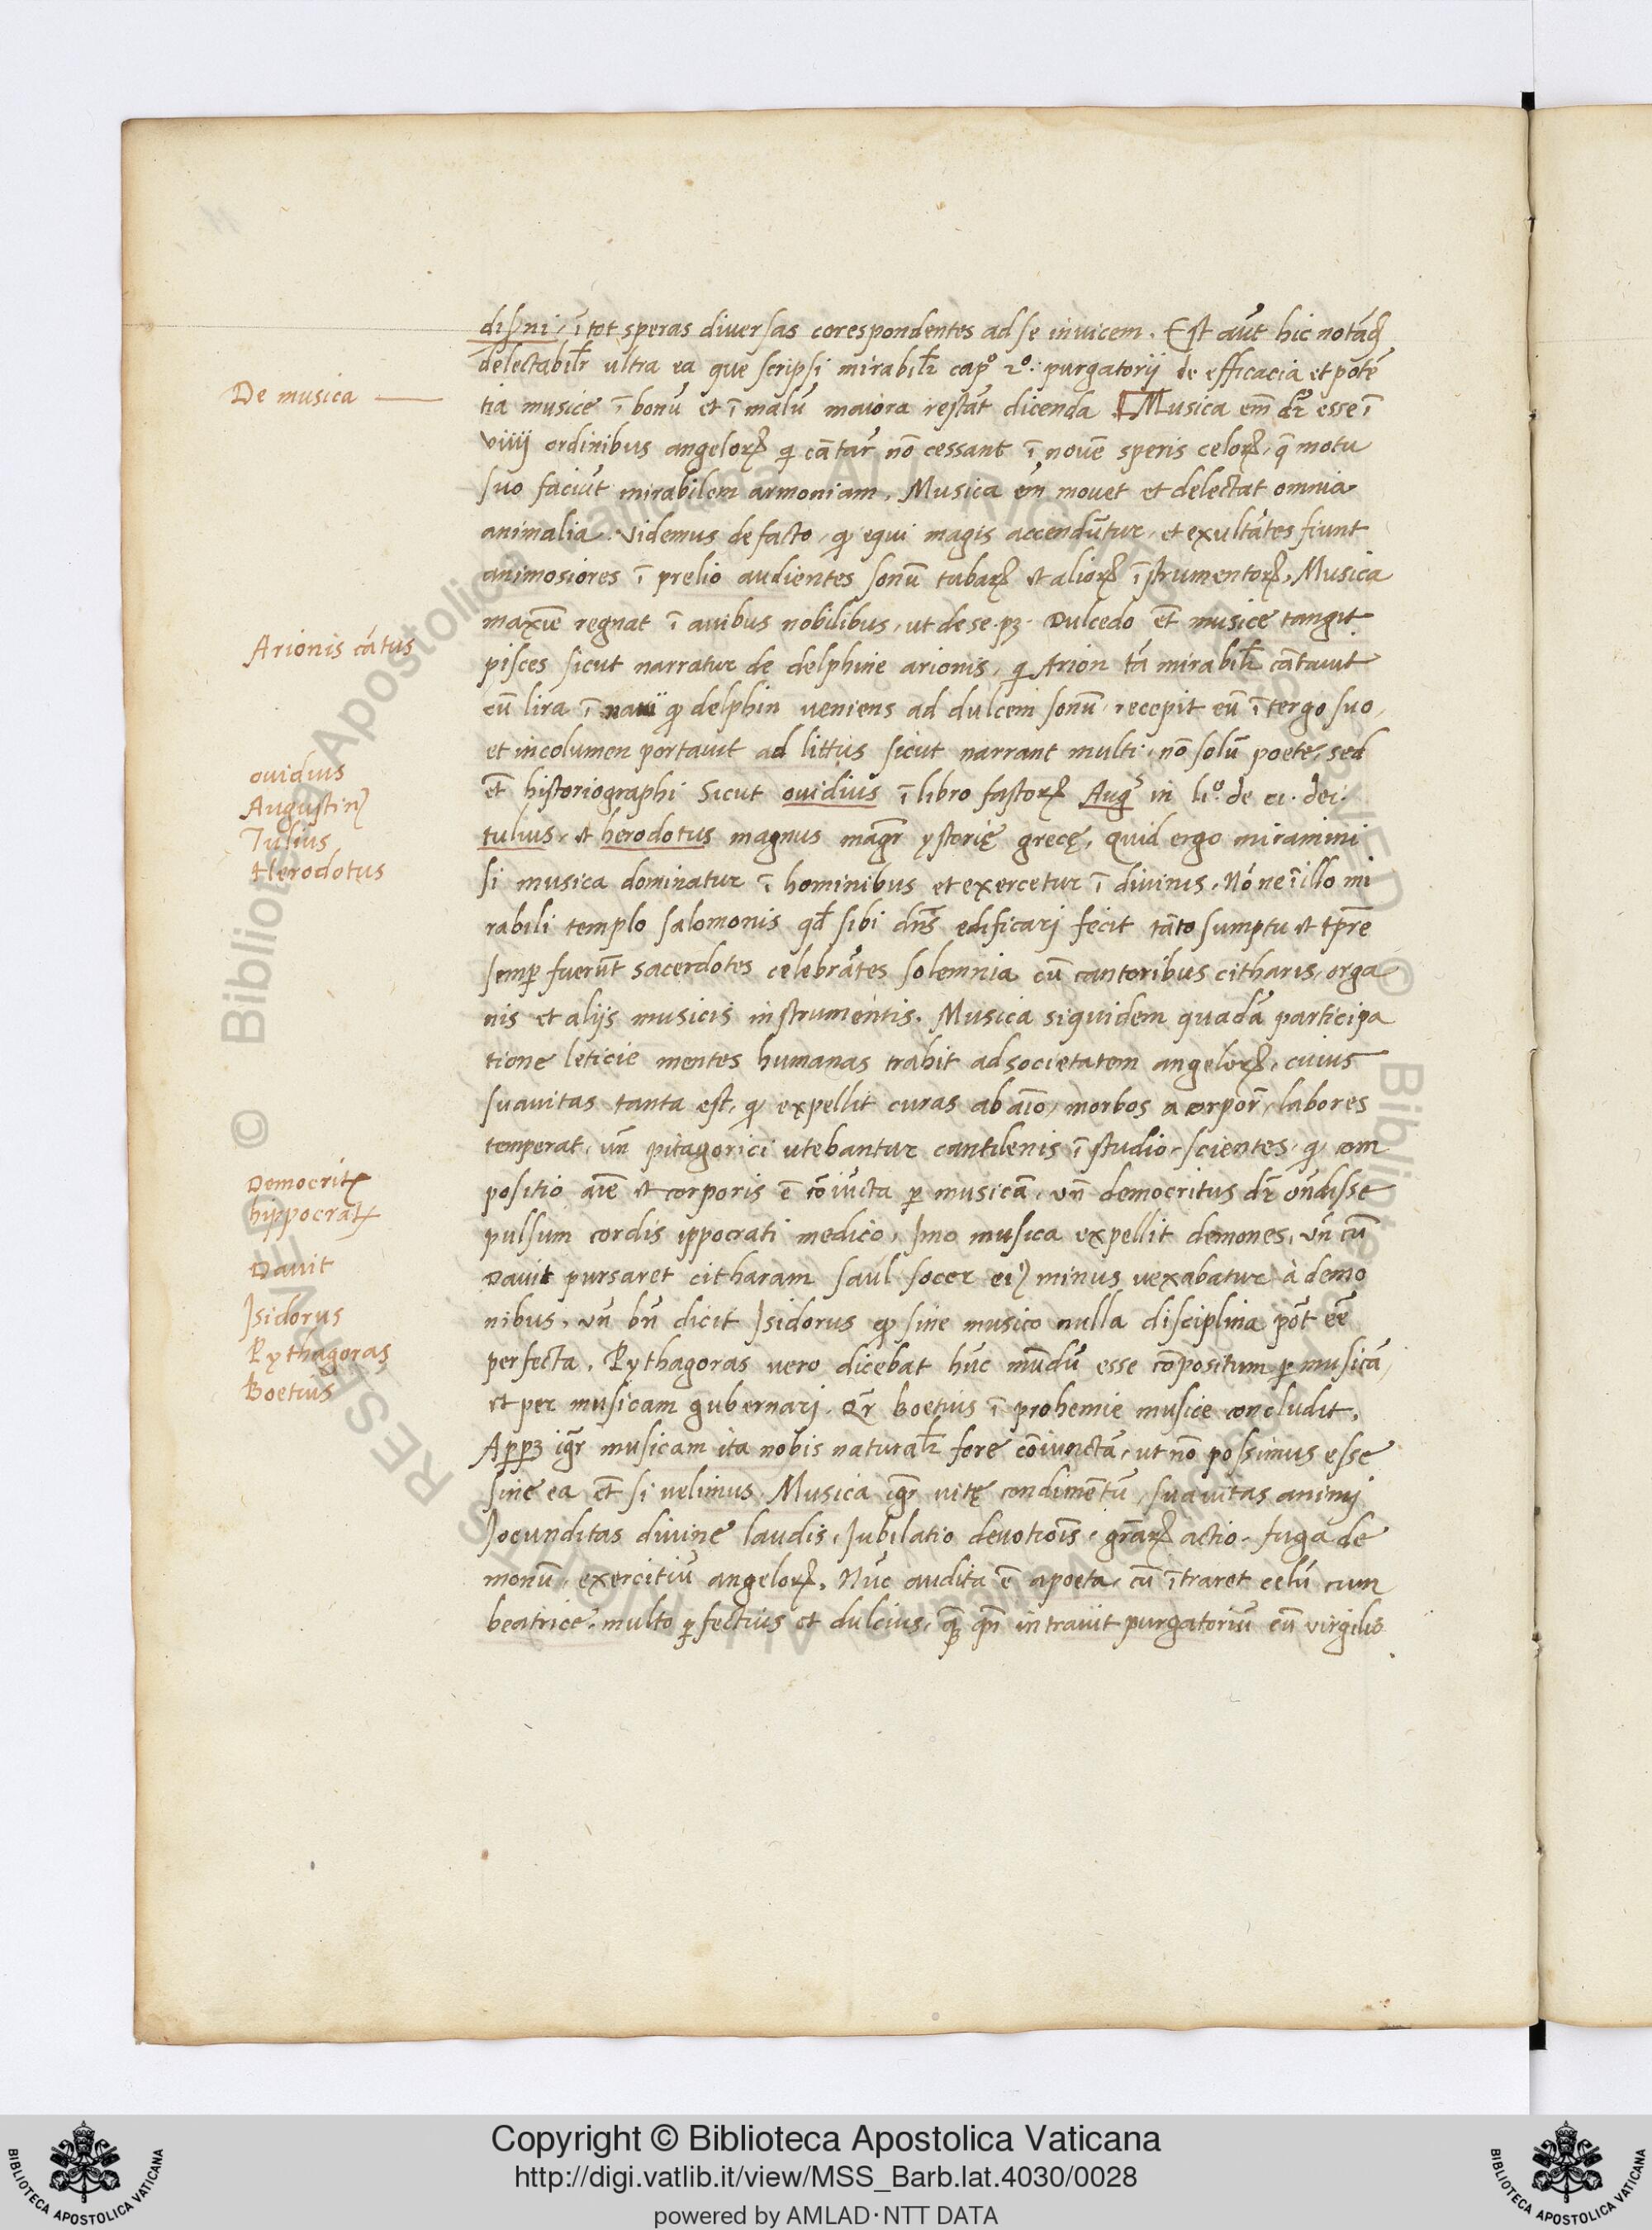 discerni, ī tot speras diversas corespondentes ad se invicem. Est aūt hic notād
delectabilr̄ ultra ea que scripsi mirabilr̄ capº 2º: purgatorij de efficacia et potē
De musica
tia musice ī bonū et ī malū maiora restāt dicenda Musica em̄ dr̄ esse ī
viiij ordinibus angeloꝝ qi cātar̄ nō cessant ī novē speris celoꝝ, qe motu
suo faciūt mirabilem armoniam. Musica em̄ movet et delectat omnia
animalia. Videmus de facto, ꝙ equi magis accendūtur, et exultātes fiunt
animosiores ī prelio audientes sonū tubaꝝ et alioꝝ īstrumentoꝝ. Musica
maxīe regnat ī avibus nobilibus, ut de se pꝫ. Dulcedo et̄ musice tangit
Arionis cātus
pisces sicut narratur de delphine arionis, qi Arion tā mirabilr̄ cātavit
cū lira ī navi ꝙ delphin veniens ad dulcem sonū recepit eū ī tergo suo,
et incolumen portavit ad littus sicut narrant multi, nō solū poete, sed
ovidius
et̄ historiographi Sicut ovidius ī libro fastoꝝ Augs in liº. de ci. dei.
Augustinꝰ
Tulius
tulius, et herodotus magnus magr̄ ystorię grecę, quid ergo miramini
Herodotus
si musica dominatur ī hominibus et exercetur ī divinis. Nōne ī illo mi
rabili templo salomonis qd̄ sibi dns̄ edificari fecit tāto sumptu et tp̄re
semꝑ fuerūt sacerdotes celebrātes solemnia cū cantoribus citharis, orga
nis et alijs musicis instrumentis. Musica siquidem quadā participa
tione leticie mentes humanas trahit ad societatem angeloꝝ, cuius
suavitas tanta est, ꝙ expellit curas ab aīo, morbos a corpor̄, labores
temperat, un̄ pitagorici utebantur cantilenis ī studio, scientes, ꝙ com
Democritꝰ
positio aīe et corporis ē cōiūcta ꝑ musicā, un̄ democritus dr̄ on̄disse
hippocratꝭ
pulsum cordis ippocrati medico, Imo musica expellit demones, un̄ cū
Davit
Davit pulsaret citharam saul socer eiꝰ minus vexabatur à demo
Isidorus
nibus, un̄ bn̄ dicit Isidorus ꝙ sine musico nulla disciplina pōt eē
Pythagoras
perfecta. Pythagoras vero dicebat hūc mūdū esse cōpositum ꝑ musicā,
Boetius
et per musicam gubernari. Qr̄ Boetius ī prohemie musice concludit.
Apꝑꝫ igr̄ musicam ita nobis naturalr̄ fore cōiunctā, ut nō possimus esse
sine ea et̄ si velimus. Musica igr̄ vitę condimētū, suavitas animj
Iocunditas divine laudis, Iubilatio devotiōis, gr̄aꝝ actio, fuga de
monū, exercitiū angeloꝝ. Nūc audita ē a poeta, cū ītraret celū cum
beatrice, multo ꝑfectius et dulcius, qꝫ qn̄ intravit purgatoriū cū virgilio.
© Biblioteca Apostolica Vaticana ALL RIGHTS RESERVED
Copyright © Biblioteca Apostolica Vaticana
http://digi.vatlib.it/view/MSS_Barb.lat.4030/0028
powered by AMLAD·NTT DATA
BIBLIOTECA APOSTOLICA VATICANA
BIBLIOTECA APOSTOLICA VATICANA